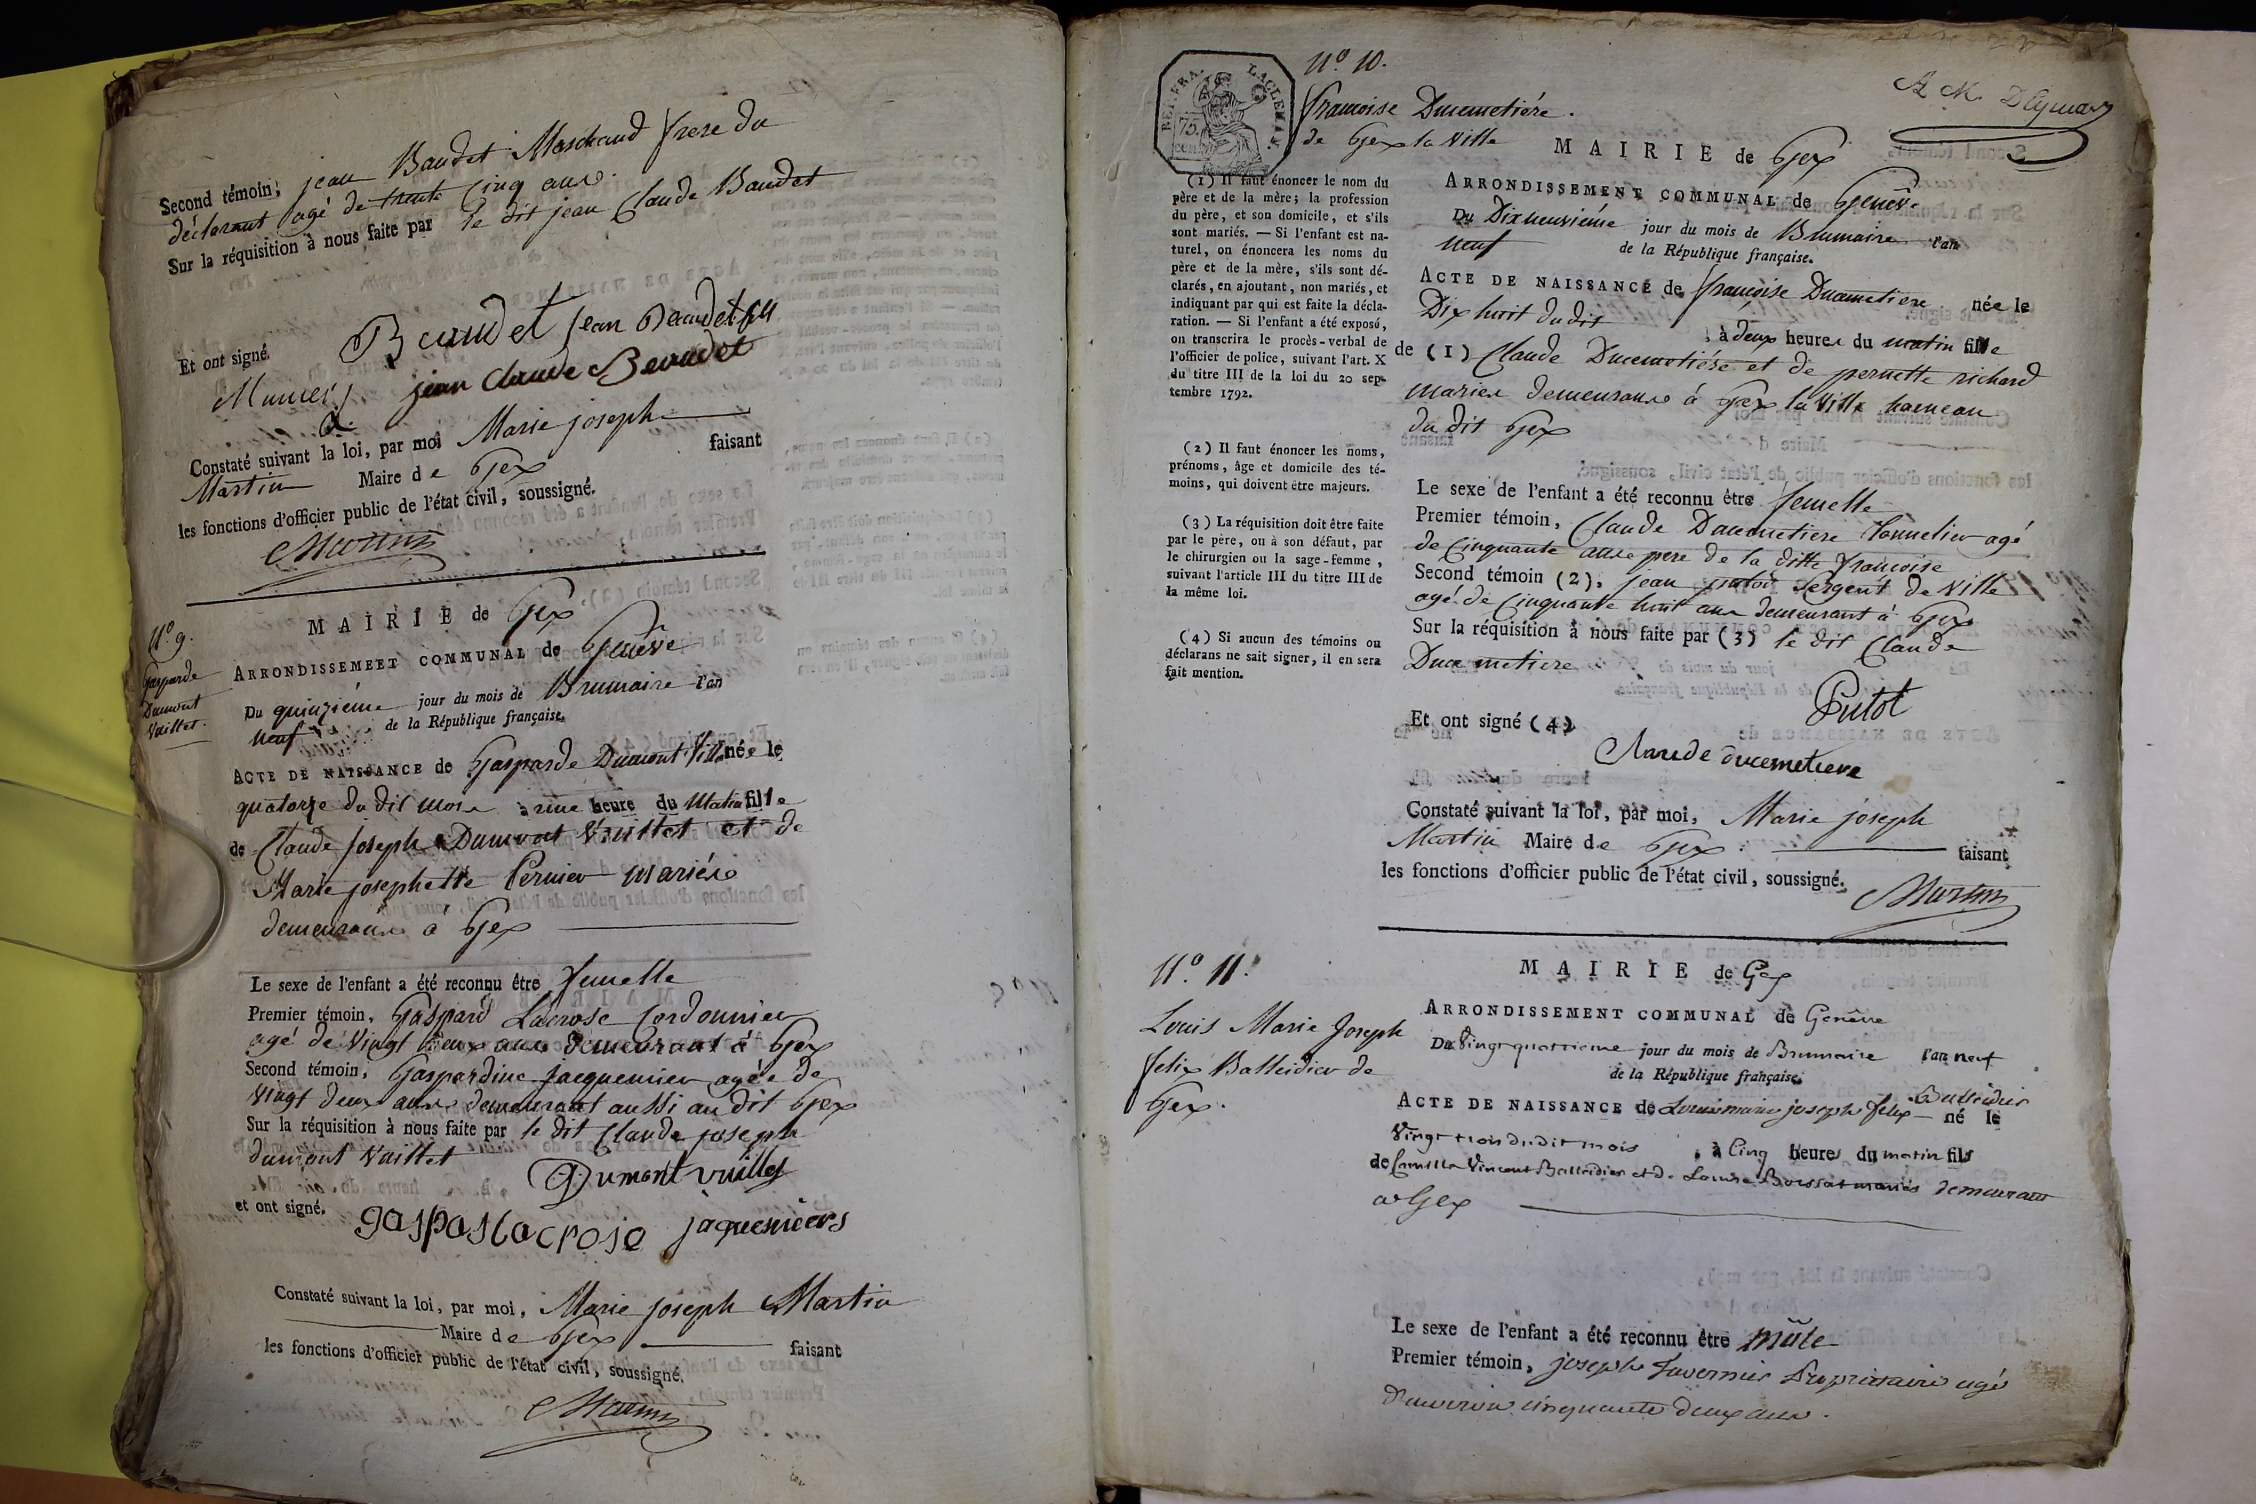 Second témoin, jean Baudet Marchand frere du
déclarant agé de trente Cinq ans.
Sur la réquisition à nous faite par le dit jean Claude Baudet
Et ont signé. Baudet jean Beaudet
jean claude Beaudet
Constaté suivant la loi, par moi Marie joseph
Martin Maire de Gex faisant
les fonctions d'officier public de l'état civil, soussigné.
Martin
N.º 9.
Gasparde
Dumont
Vuillet.
MAIRIE de Gex
ARRONDISSEMEET COMMUNAL de Genève
Du quinzième jour du mois de Brumaire l'an
neuf de la République française.
ACTE DE NAISSANCE de Gasparde Dumont Vill. née le
quatorze du dit mois à une heure du Matin fille
de Claude joseph Dumont Vuillet et de
Marie josephette Pernier mariés
demeurans à Gex
Le sexe de l'enfant a été reconnu être femelle
Premier témoin, Gaspard Lacrose Cordonnier
agé de Vingt deux ans demeurant à Gex
Second témoin, Gaspardine jacquemier agée de
Vingt deux ans demeurant aussi au dit Gex
Sur la réquisition à nous faite par le dit Claude joseph
dumont Vuillet Dumont vuillet
et ont signé. gaspaslacrose jaquemiers
Constaté suivant la loi, par moi, Marie joseph Martin
Maire de Gex faisant
les fonctions d'officier public de l'état civil, soussigné.
Martin
REP. FRA.
75.
cent.
N.º 10.
françoise Ducemetiére.
de Gex la Ville
(1) Il faut énoncer le nom du
père et de la mère; la profession
du père, et son domicile, et s'ils
sont mariés. — Si l'enfant est na-
turel, on énoncera les noms du
père et de la mère, s'ils sont dé-
clarés, en ajoutant, non mariés, et
indiquant par qui est faite la décla-
ration. — Si l'enfant a été exposé,
on transcrira le procès-verbal de
l'officier de police, suivant l'art. X
du titre III de la loi du 20 sep-
tembre 1792.
(2) Il faut énoncer les noms,
prénoms, âge et domicile des té-
moins, qui doivent être majeurs.
(3) La réquisition doit être faite
par le père, ou à son défaut, par
le chirurgien ou la sage-femme,
suivant l'article III du titre III de
la même loi.
(4) Si aucun des témoins ou
déclarans ne sait signer, il en sera
fait mention.
MAIRIE de Gex
ARRONDISSEMENT COMMUNAL de Genève
Du Dixneuvième jour du mois de Brumaire l'an
neuf de la République française.
ACTE DE NAISSANCE de françoise Ducemetiere née le
Dix huit du dit à deux heures du matin fille
de (1) Claude Ducemetiére et de pernette richard
Mariés demeurans à Gex la Ville hameau
du dit Gex
Le sexe de l'enfant a été reconnu être femelle
Premier témoin, Claude Ducemetiere tonnelier agé
de Cinquante ans pere de la ditte françoise
Second témoin (2), jean putod Sergent de Ville
agé de Cinquante huit ans demeurant à Gex
Sur la réquisition à nous faite par (3) le dit Claude
Duce metiere
Putot
Et ont signé (4)
Claude ducemetiere
Constaté suivant la loi, par moi, Marie joseph
Martin Maire de Gex faisant
les fonctions d'officier public de l'état civil, soussigné.
Martin
N.º 11.
Louis Marie Joseph
felix Balleidier de
Gex.
MAIRIE de Gex
ARRONDISSEMENT COMMUNAL de Genève
Du Vingt quatrieme jour du mois de Brumaire l'an neuf
de la République française.
Balleidier
ACTE DE NAISSANCE de Louis marie joseph felix né le
Vingt trois du dit mois à Cinq heures du matin fils
de Camille Vincent Balleidier et de Louise Boissat mariés demeurans
à Gex
Le sexe de l'enfant a été reconnu être mâle
Premier témoin, joseph tavernier Propriétaire agé
d'environ cinquante deux ans.